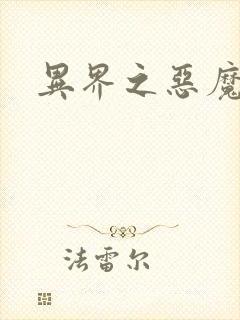 異界之惡魔
法雷尔